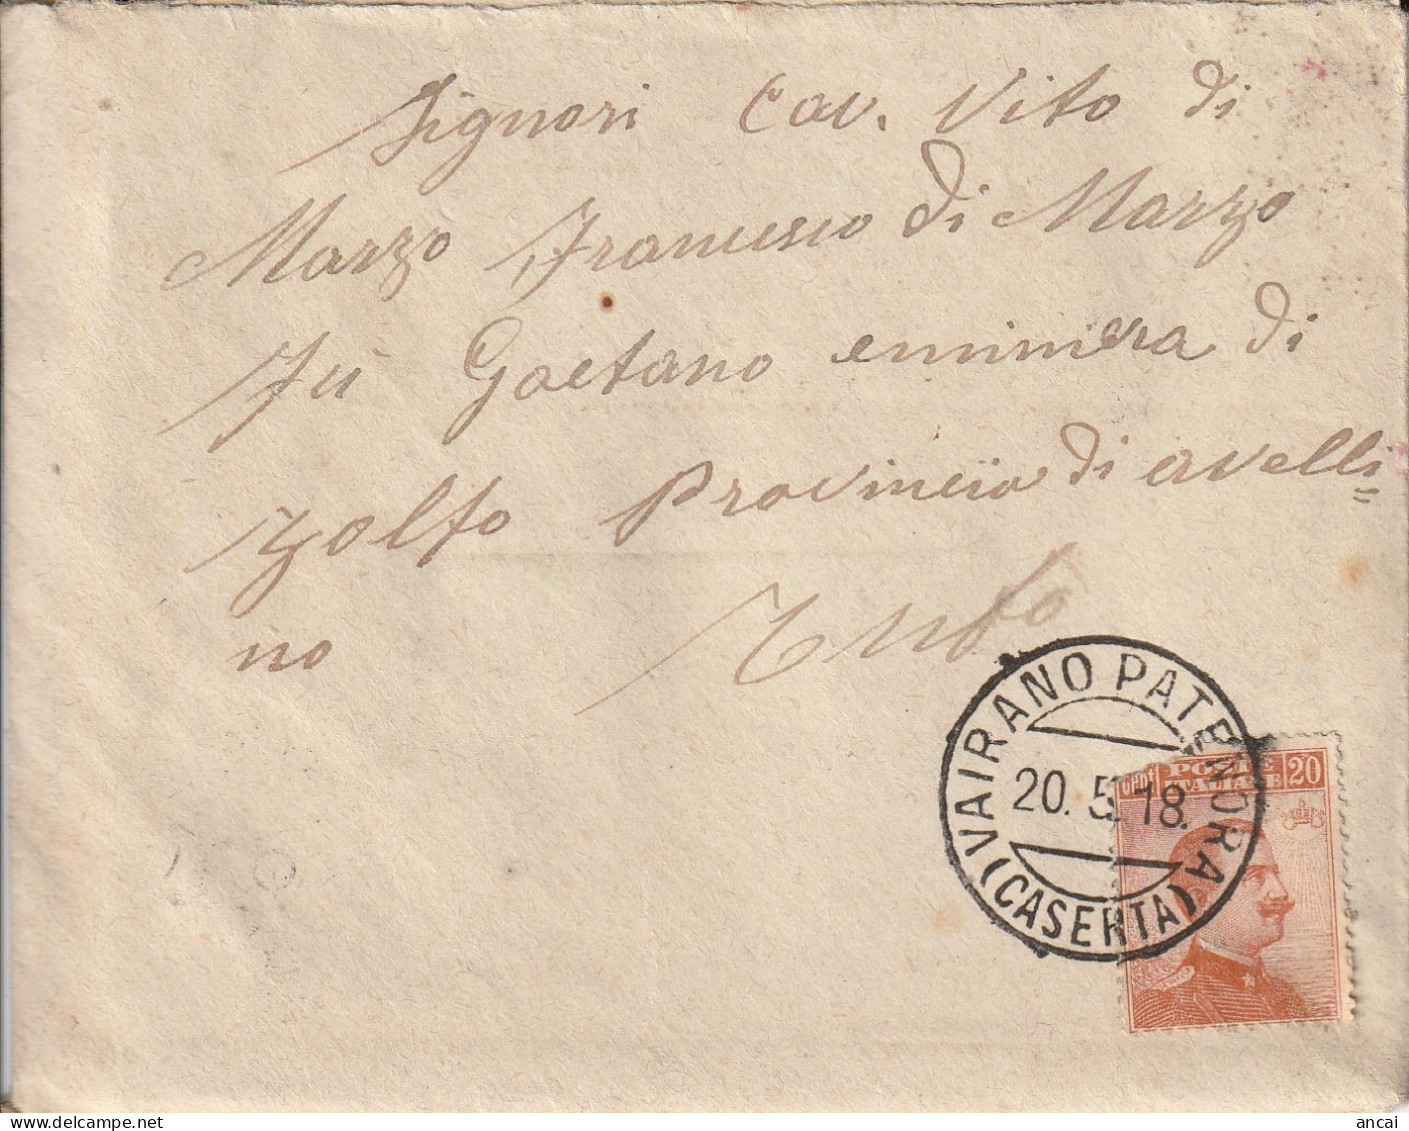 Signori Cav. Vito di
Marzo Francesco di Marzo
fù Gaetano emminera di
zolfo Provincia di avelli=
no Tufo
VAIRANO PATENORA
20.5.18.
(CASERTA)
POSTE
ITALIANE
20
delcampe.net
ancai